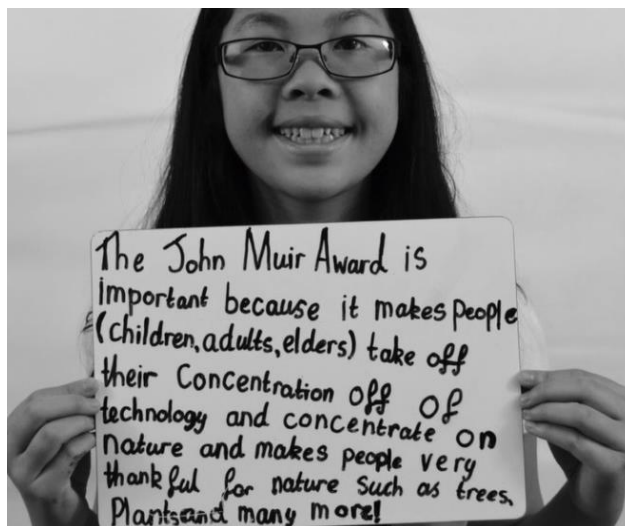 The John Muir Award is
important because it makes people
(children, adults, elders) take off
their Concentration off of
technology and concentrate on
nature and makes people very
thankful for nature such as trees,
Plants and many more!